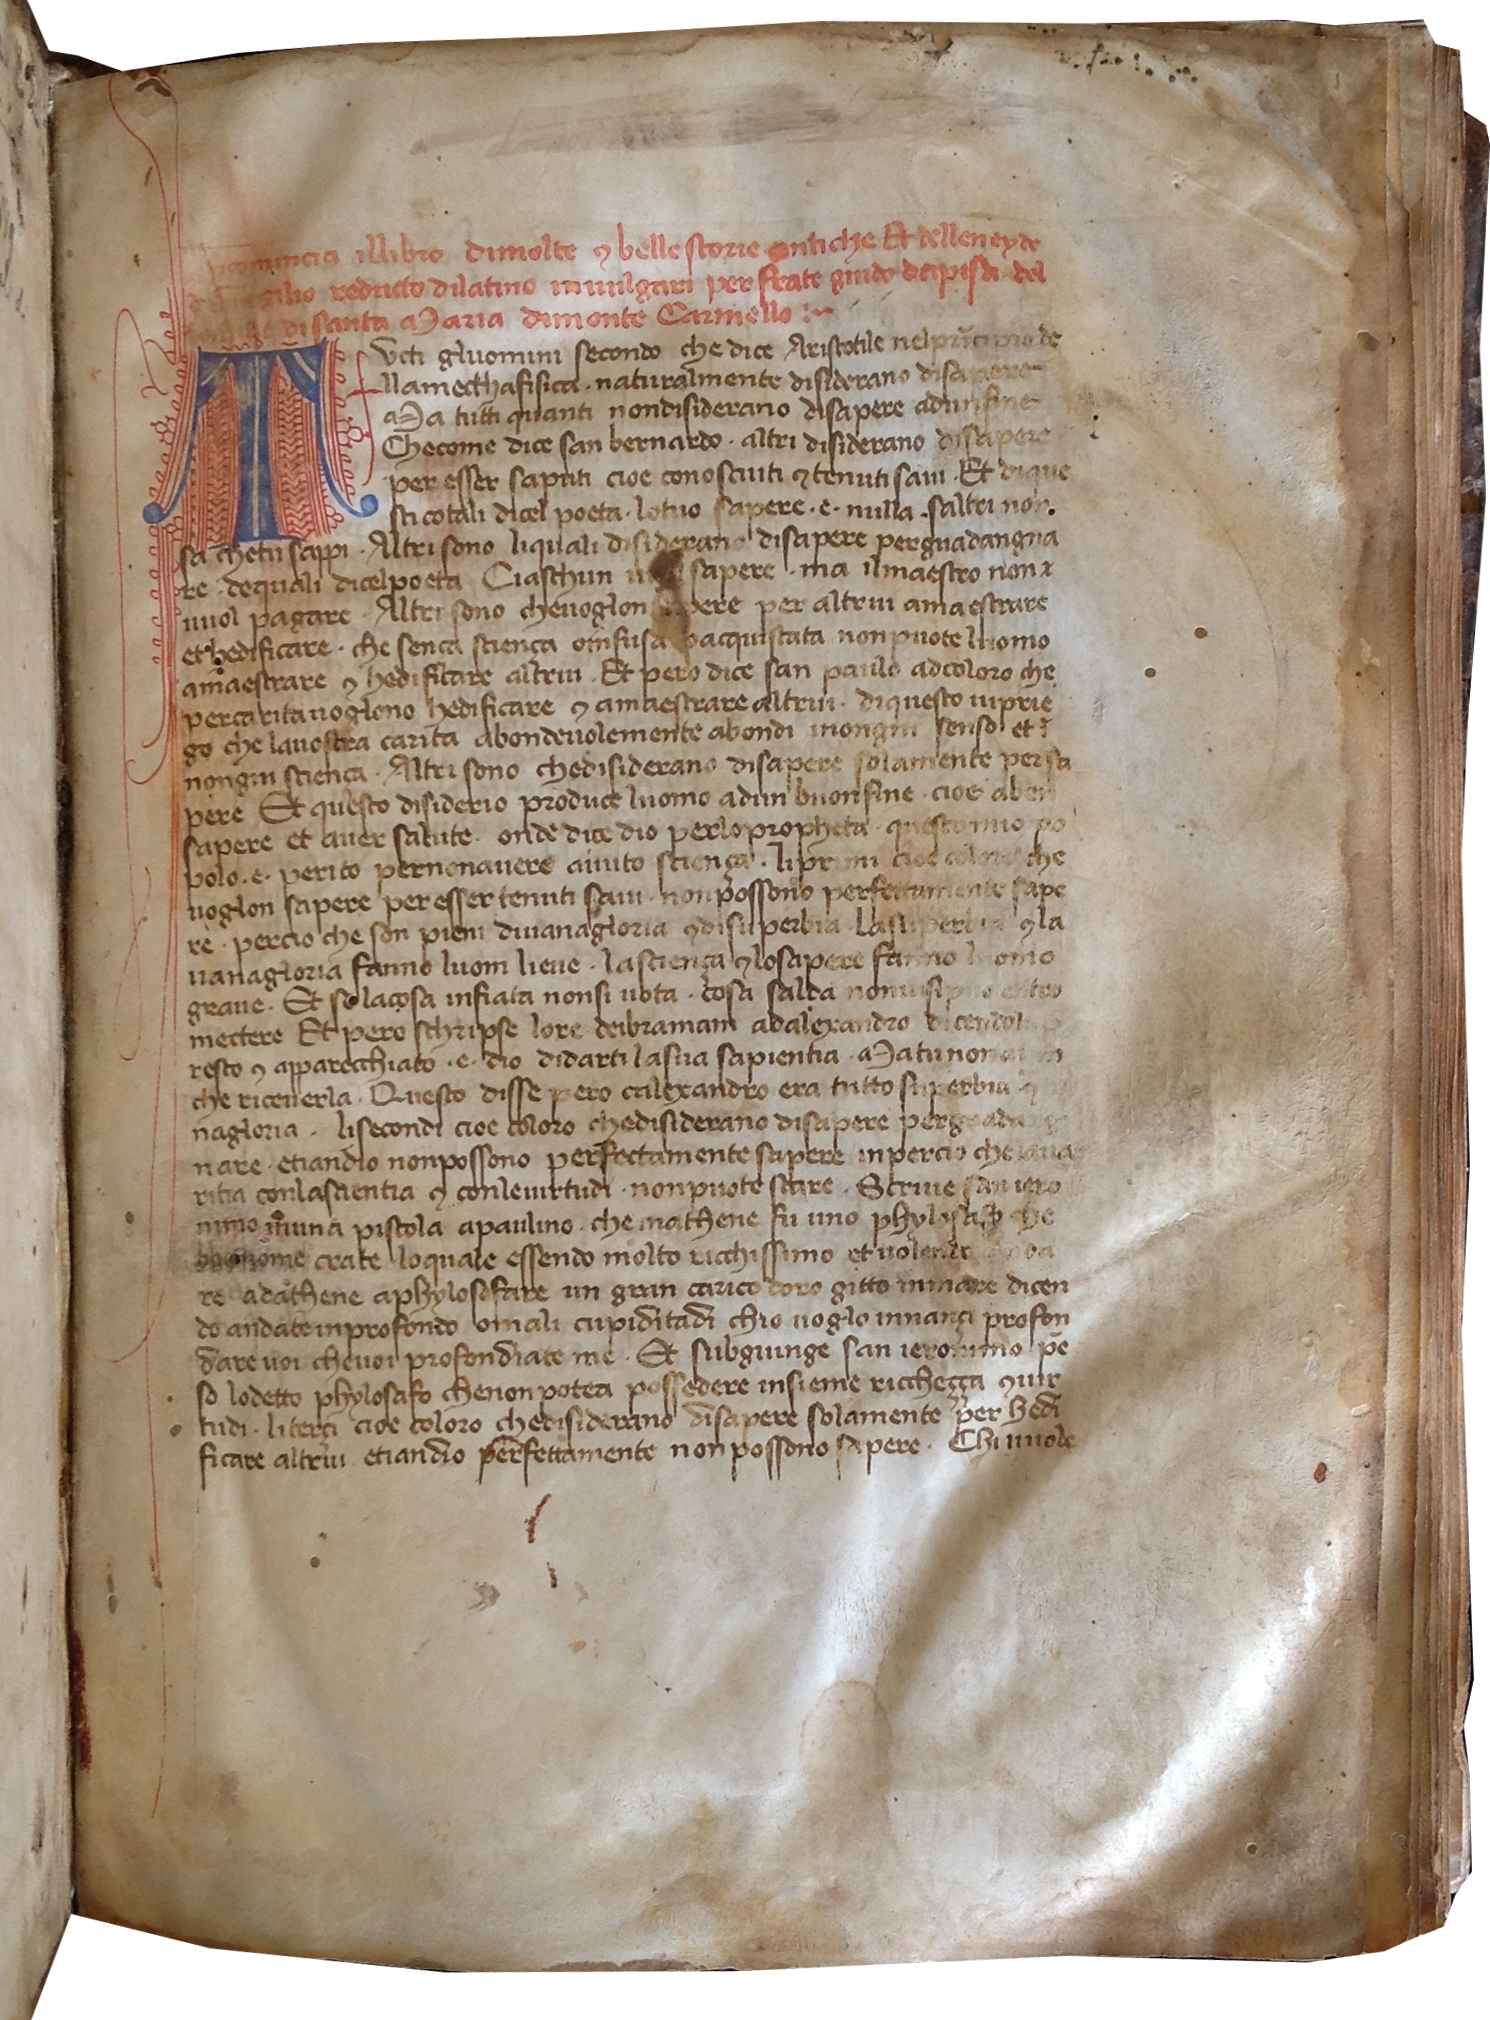 illibro dimolte ⁊ belle storie antiche Et delleneyde
reducto dilatino inuulgari per frate guido dapisa del
disanta Maria dimonte Carmello :~
Tvcti gluomini secondo che dice Aristotile nelprīcipio de
llamecthafisica · naturalmente disiderano disapere
Ma tutti quanti nondisiderano disapere adunfine
Checome dice san bernardo · altri disiderano disapere
per esser saputi cioe conosciuti ⁊ tenuti saui · Et di que
sti cotali dicel poeta · lotuo sapere · e · nulla · saltri non
sa chetu sappi · Altri sono liquali disiderano disapere perguadangna
re · dequali dicelpoeta Ciaschun sapere · ma ilmaestro non
uuol pagare · Altri sono cheuoglon sapere per altrui amaestrare
et hedificare · che sença sciença oinfusa oacquistata nonpuote luomo
amaestrare ⁊ hedificare altrui · Et pero dice san paulo adcoloro che
percarita uoglono hedificare ⁊ amaestrare altrui · diquesto uiprie
go che lauostra carita abondeuolemente abondi inongni senso et ī
nongni sciença · Altri sono chedisiderano disapere solamente persa
pere Et questo disiderio produce luomo adun buonfine · cioe aben
sapere et auer salute · onde dice dio perlopropheta · questo mio po
polo · e · perito pernonauere auuto sciença · li primi cioe coloro che
uoglon sapere per esser tenuti saui · nonpossono perfettamente sape
re · percio che son pieni diuanagloria ⁊ disuperbia · Lasuperbia ⁊ la
uanagloria fanno luom lieue · la sciença ⁊ losapere fanno luomo
graue · Et se lacosa infiata nonsi uota · cosa salda nonuisipuo entro
mectere Et pero schripse lore deibramani adalexandro dicendo
resto ⁊ apparecchiato · e · dio didarti lasua sapientia · Ma tu non
che riceuerla · Questo disse pero calexandro era tutto superbia
nagloria · lisecondi cioe coloro chedisiderano disapere perguadangn
nare · etiandio nonpossono perfectamente sapere inpercio che laua
ritia conlascientia ⁊ conleuirtudi · nonpuote stare · Scriue san iero
nimo inuna pistola apaulino · che mathene fu uno phylosafo che
crate loquale essendo molto ricchissimo et uolendo anda
re adathene aphylosofare un gran carico doro gitto inmare dicen
do andate inprofondo omali cupiditadi chio uoglo innançi profon
dare uoi cheuoi profondiate me · Et subgiunge san ieronimo pē
so lodetto phylosafo chenonpotea possedere insieme riccheçça ⁊ uir
tudi · literçi cioe coloro chedisiderano disapere solamente per hedi
ficare altrui etiandio perfettamente non possono sapere · Chi uuole